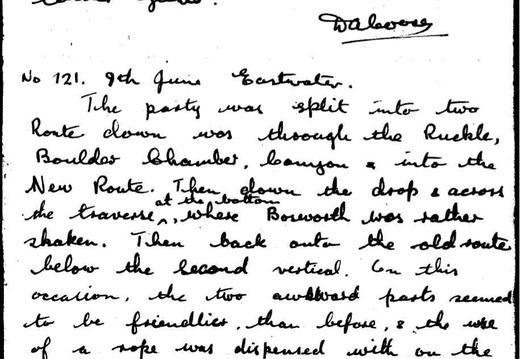 No 121. 9th June Eastwater.
The party was split into two
Route down was through the Ruckle,
Boulder Chamber, Canyon & into the
New Route. Then down the drop & across
the traverse at the bottom, where Bosworth was rather
shaken. Then back onto the old route
below the second vertical. On this
occasion, the two awkward parts seemed
to be friendlier, than before, & the use
of a rope was dispensed with on the